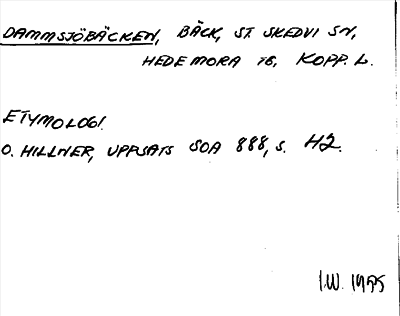 DAMMSJÖBÄCKEN, BÄCK, ST. SKEDVI SN,
HEDEMORA TG, KOPP. L.
ETYMOLOGI.
O. HILLNER, UPPSATS SOA 888, S. 42.
I.W. 1975